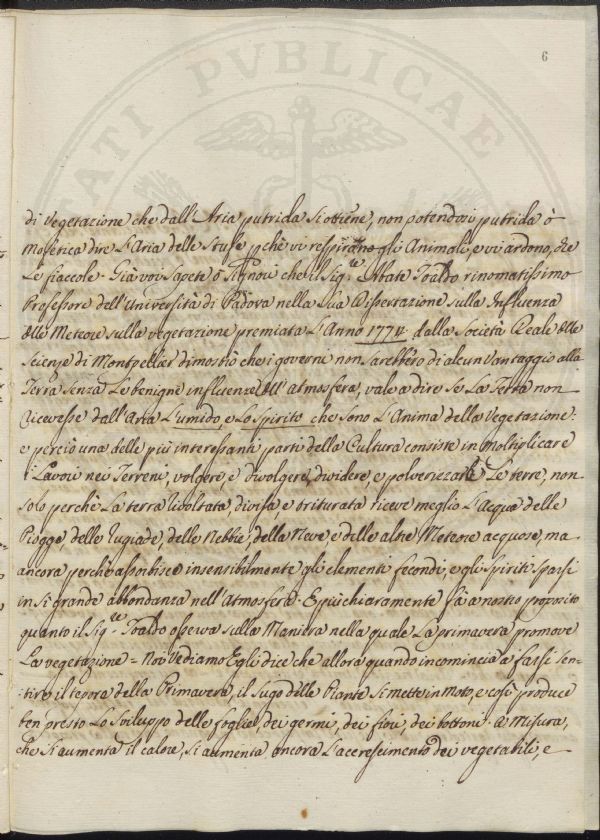 TATI PVBLICAE
6
di Vegetazione che dall'Aria putrida si ottiene, non potendosi putrida ò
Mofetica dire l'Aria delle Stufe pchè vi respirano gli Animali, e vi ardono,
Le fiaccole. Già voi sapete ò Signori che il Sig.re Abate Toaldo rinomatissimo
Professore dell'Università di Padova nella Sua Dissertazione sulla Influenza
delle Meteore sulla vegetazione premiata l'Anno 1774. dalla Società Reale delle
Scienze di Montpellier dimostrò che i governi non sarebbero di alcun vantaggio alla
Terra senza Le benigne influenze dell'atmosfera, vale a dire se La Terra non
ricevesse dall'Aria L'umido, e Lo Spirito che sono L'Anima della Vegetazione:
e perciò una delle più interessanti parti della Cultura consiste in moltiplicare
i Lavori nei Terreni, volgere, e divolgere, dividere, e polverizzare Le terre, non
solo perchè La terra rivoltata divisa e triturata riceve meglio L'acqua delle
Piogge, delle rugiade, delle Nebbie, della Neve e delle altre Meteore acquose, ma
ancora perchè assorbisce insensibilmente gli elementi fecondi, e gli Spiriti sparsi
in sì grande abbondanza nell'Atmosfera. E più chiaramente fà a nostro proposito
quanto il Sig.re Toaldo osserva sulla Maniera nella quale La primavera promove
La vegetazione = Noi Vediamo Egli dice che allora quando incomincia a farsi sen-
:tire il tepore della Primavera, il Sugo delle Piante si mette in Moto, e così produce
ben presto Lo Sviluppo delle foglie, dei germi, dei fiori, dei bottoni. a Misura,
che si aumenta il calore, si aumenta ancora L'accrescimento dei vegetabili, e